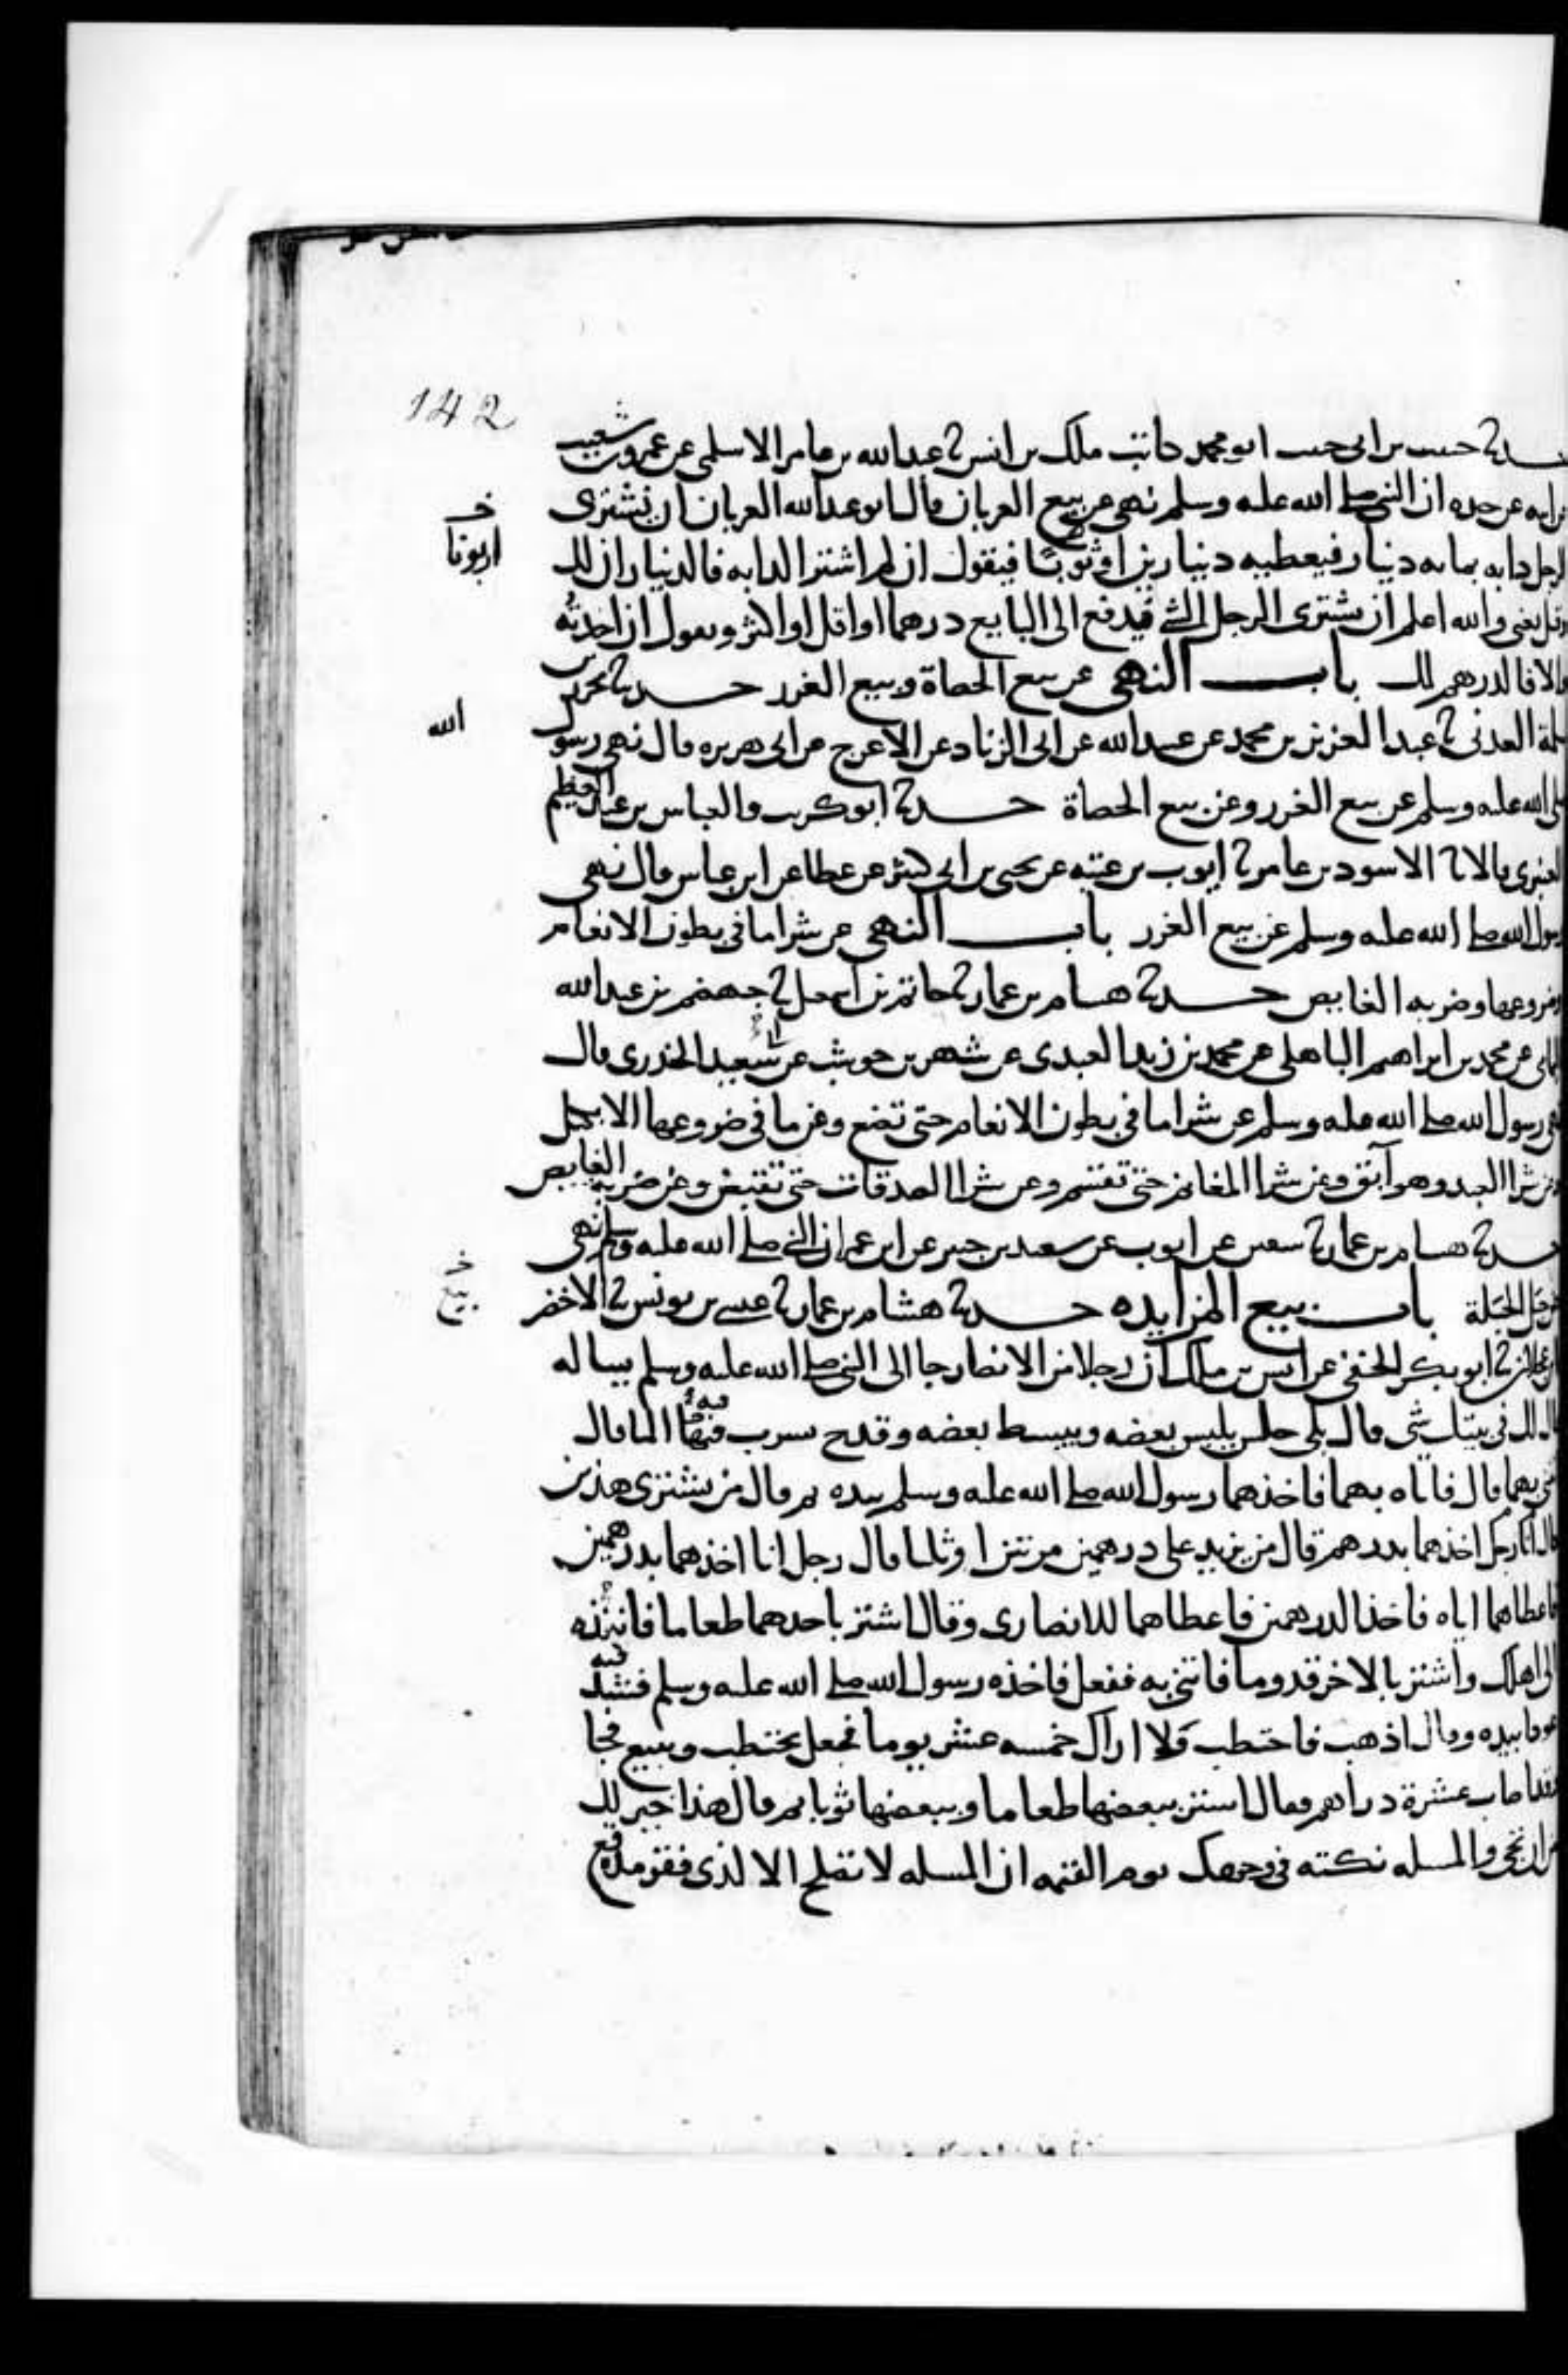 142
حدثنا حبيب بن ابى حبيب ابو محمد كاتب ملك بن انس ثنا عبدالله بن عامر الاسلمى عن عمرو بن شعيب
عن ابيه عن جده ان النبي صلى الله عليه وسلم نهى عن بيع العربان قال ابو عبدالله العربان ان يشترى
خ
اربونا
الرجل دابه بمايه دينار فيعطيه دينارين اوثوبا فيقول ان لم اشتر الدابه فالديناران لك
وقيل يعنى والله اعلم ان يشترى الرجل الشي فيدفع الى البايع درهما او اقل او اكثر ويقول ان اخذته
والا فالدرهم لك باب النهى عن بيع الحصاة وبيع الغرر حدثنا محرز بن
سلمة العدنى ثنا عبد العزيز بن محمد عن عبيدالله عن ابى الزناد عن الاعرج عن ابى هريره قال نهى رسول
الله
صلى الله عليه وسلم عن بيع الغرر وعن بيع الحصاة حدثنا ابو كريب والعباس بن عبد العظيم
العنبرى قالا ثنا الاسود بن عامر ثنا ايوب بن عتبه عن يحيى بن ابى كثير عن عطا عن ابن عباس قال نهى
رسول الله صلى الله عليه وسلم عن بيع الغرر باب النهى عن شرا ما فى بطون الانعام
وضروعها وضربه الغايص حدثنا هشام بن عمار ثنا حاتم بن اسمعيل ثنا جهضم بن عبدالله
اليمانى عن محمد بن ابراهيم الباهلى عن محمد بن زيد العبدى عن شهر بن حوشب عن ابى سعيد الخدرى قال
نهى رسول الله صلى الله عليه وسلم عن شرا ما فى بطون الانعام حتى تضع وعن ما فى ضروعها الا بكيل
وعن شرا العبد وهو آبق وعن شرا المغانم حتى تقسم وعن شرا الصدقات حتى تقبض وعن ضربه الغايص
حدثنا هشام بن عمار ثنا سفين عن ايوب عن سعيد بن جبير عن ابن عمر ان النبي صلى الله عليه وسلم نهى
عن حبل الحبلة باب بيع المزايده حدثنا هشام بن عمار ثنا عيسى بن يونس ثنا الاخضر
خ
بيع
بن عجلان ثنا ابو بكر الحنفى عن انس بن ملك ان رجلا من الانصار جا الى النبي صلى الله عليه وسلم يساله
فقال لك فى بيتك شى قال بلى حلس يلبس بعضه ويبسط بعضه وقدح يشرب فيه الما قال
ائتنى بهما قال فاتاه بهما فاخذهما رسول الله صلى الله عليه وسلم بيده ثم قال من يشترى هذين
فقال رجل انا اخذهما بدرهم قال من يزيد على درهم مرتين او ثلثا قال رجل انا اخذهما بدرهمين
فاعطاهما اياه فاخذ الدرهمين فاعطاهما للانصارى وقال اشتر باحدهما طعاما فانبذه
الى اهلك واشتر بالاخر قدوما فاتنى به ففعل فاخذه رسول الله صلى الله عليه وسلم فشد فيه
عودا بيده وقال اذهب فاحتطب ولا اراك خمسه عشر يوما فجعل يحتطب ويبيع فجا
وقد اصاب عشرة دراهم فقال اشتر ببعضها طعاما وببعضها ثوبا ثم قال هذا خير لك
من ان تجى والمسله نكته فى وجهك يوم القيمه ان المسله لا تصلح الا لذى فقر مدقع